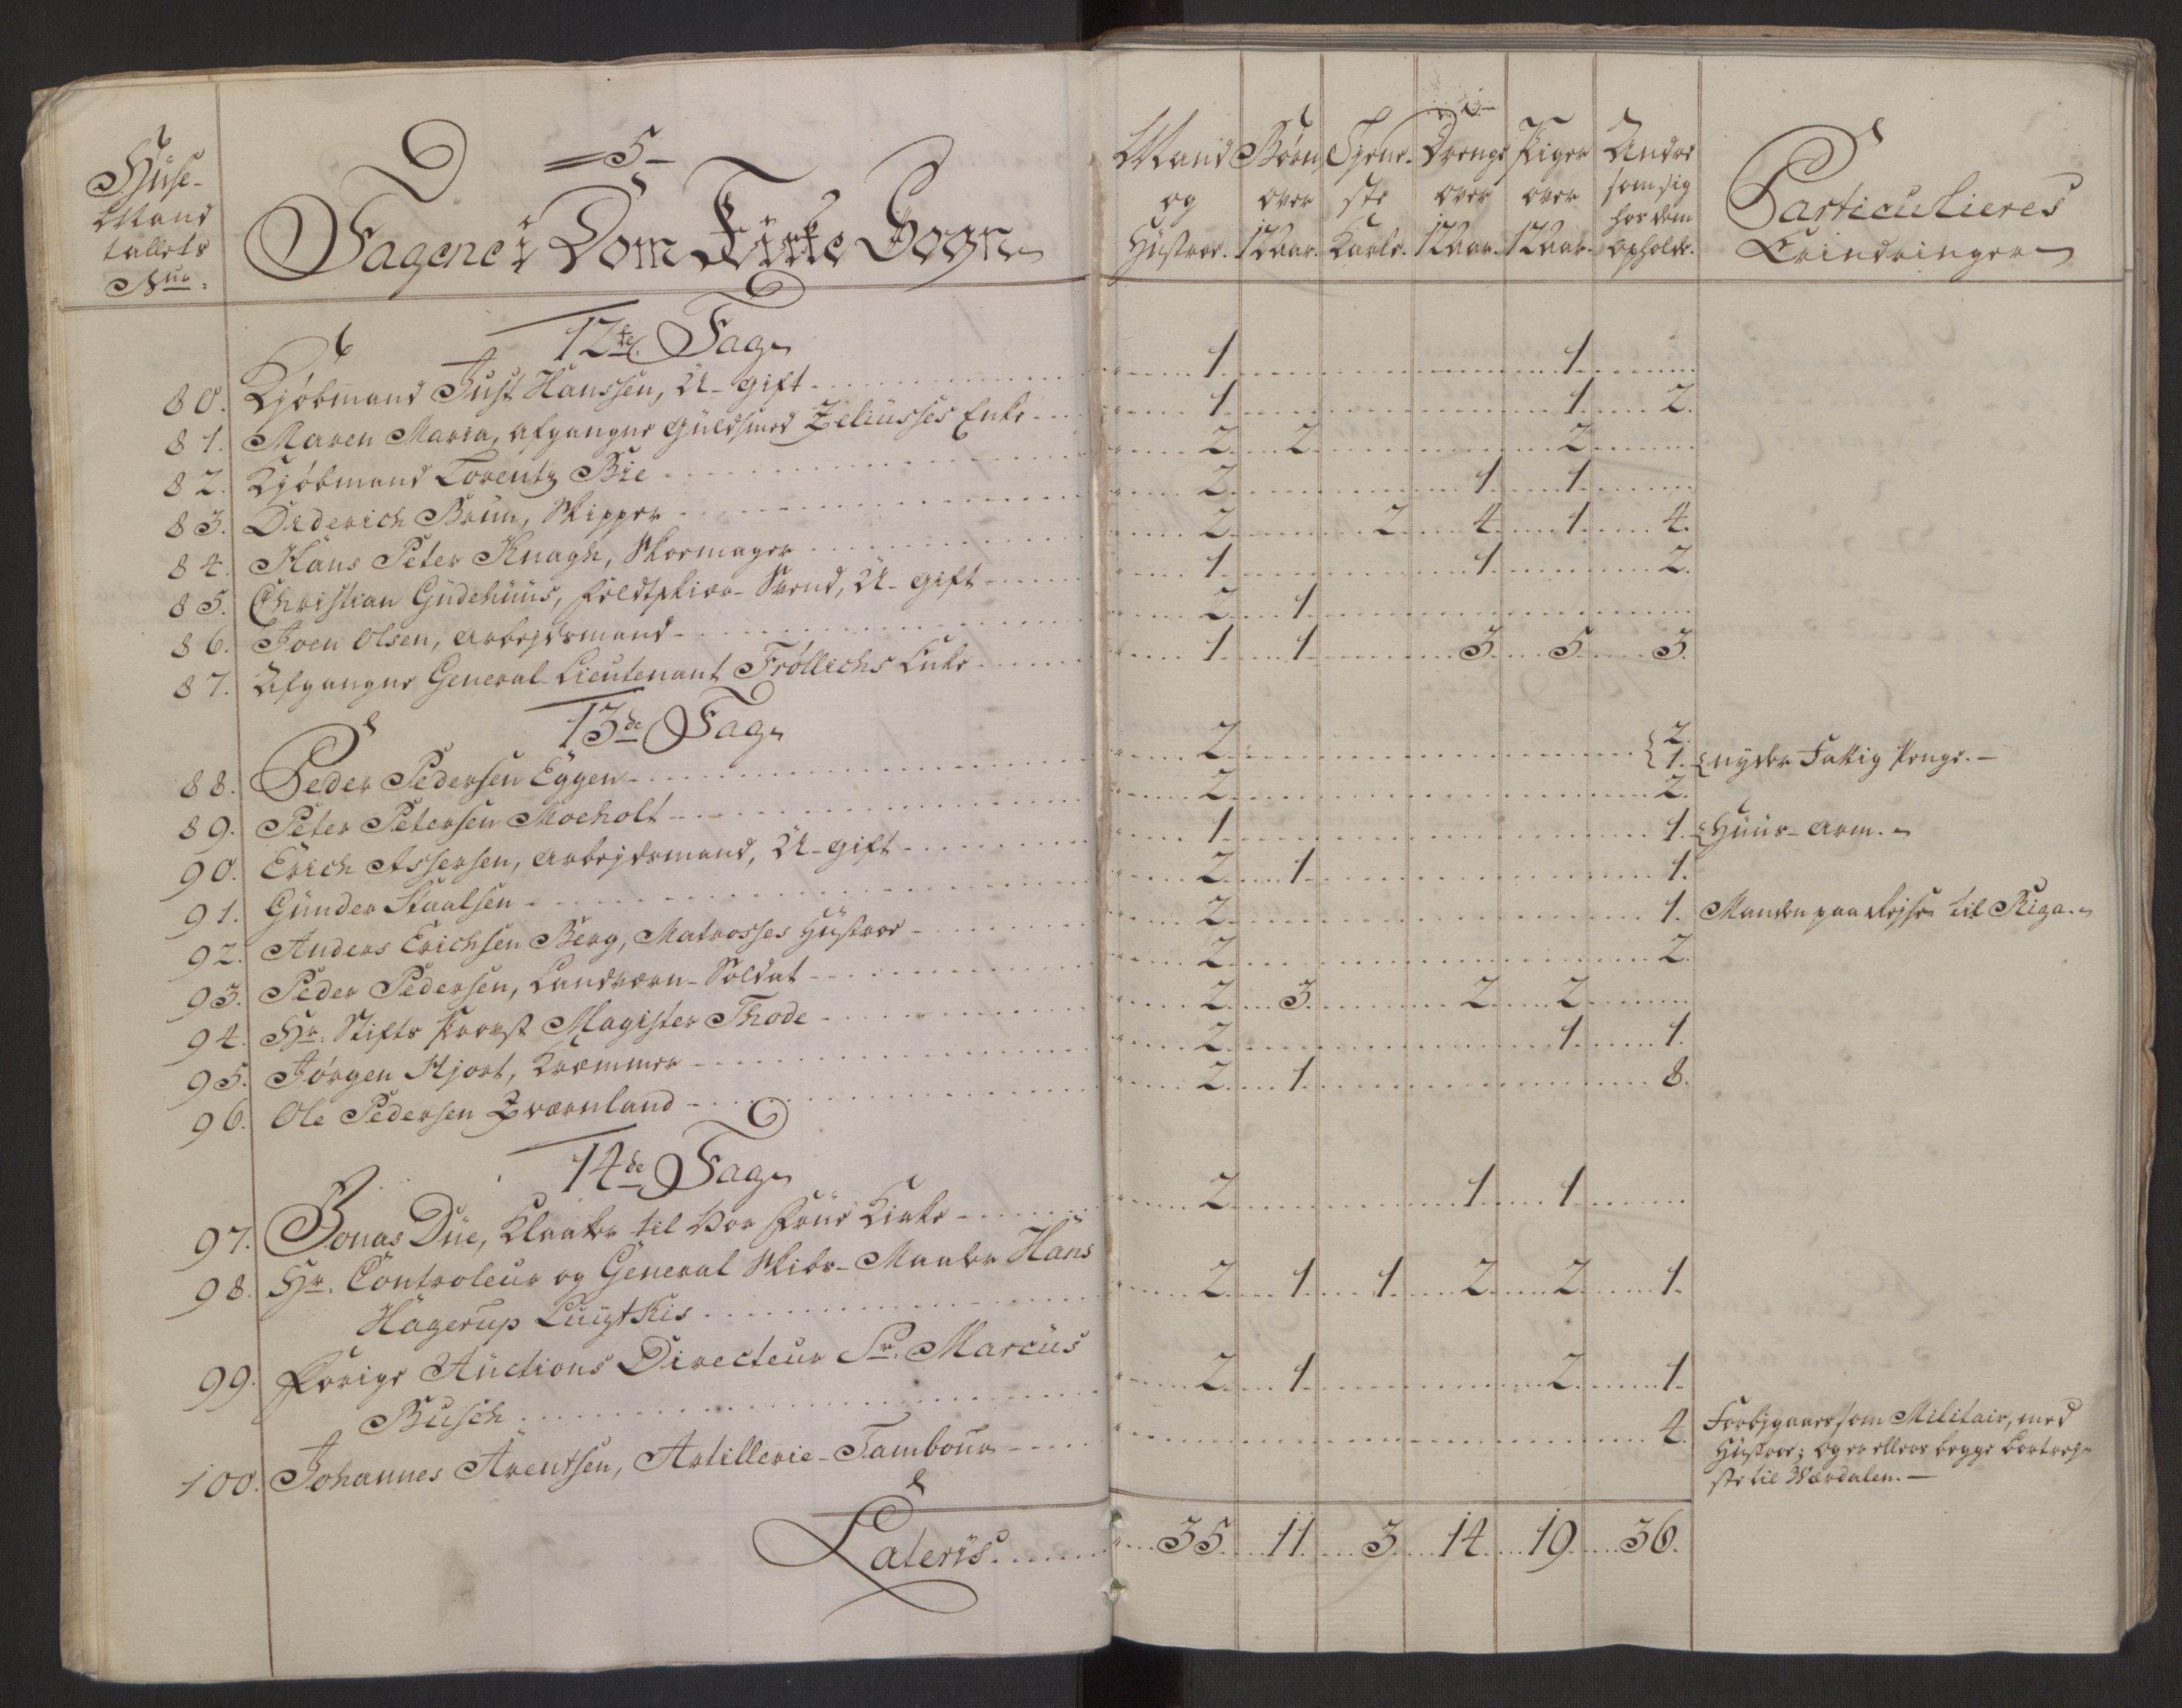 =5-
Huse-
Mand
tallets
Nur:
Fagene i Dom Kirke Sogn
Mand
og
Hustroe.
Børn
over
12 Aar.
Tjene-
ste
Karle.
Drenge
over
12 Aar.
Piger
over
12 Aar.
Andre
som sig
hos dem
opholde.
Particulieres
Erindringer
12te Fag
80. Kjøbmand Just Hanssen, U-gift 1 1
81. Maren Maria, afgangne Guldsmed Zeliusses Enke 1 1 2.
82. Kjøbmand Lorentz Bie 2 2 2
83. Diderich Brun, Skipper 2 1 1
84. Hans Peter Knagh, Skoemager 2 2 4 1 4.
85. Christian Gudehuus, Feldtskier-Svend, U-gift 1 1 2.
86. Joen Olsen, Arbejdsmand 2 1
87. Afgangne General-Lieutenant Frøllichs Enke 1 1 3 5 3.
13de Fag
88. Peder Pedersen Eggen 2 { 2. 1. { nyder Fattig Penge. -
89. Peter Petersen Moeholt 2 2.
90. Erich Assersen, Arbejdsmand, U-gift 1 1. { Huus-arm.
91. Gunder Staalsen 2 1 1.
92. Anders Erichsen Berg, Matrosses Hustroe 2 1. Manden paa Rejse til Riga.
93. Peder Pedersen, Landværn-Soldat 2 2.
94. Hr. Stifts Provst Magister Thode 2 3 2 2
95. Jørgen Hjort, Kræmmer 2 1 1.
96. Ole Pedersen Qværnland 2 1 8.
14de Fag
97. Jonas Due, Klokker til Vor Frue Kirke 2 1 1
98. Hr. Controleur og General Skibs-Maaler Hans
Hagerup 2 1 1 2 2 1.
99. Forige Auctions Directeur Sr. Marcus
Busch 2 1 2 1.
100. Johannes Arentsen, Artillerie-Tambour 4.
Forbjgaaer som Militair, med
Hustroe; og er ellers begge bortrej-
ste til Værdalen. -
Lateris 35. 11. 3. 14. 19. 36.